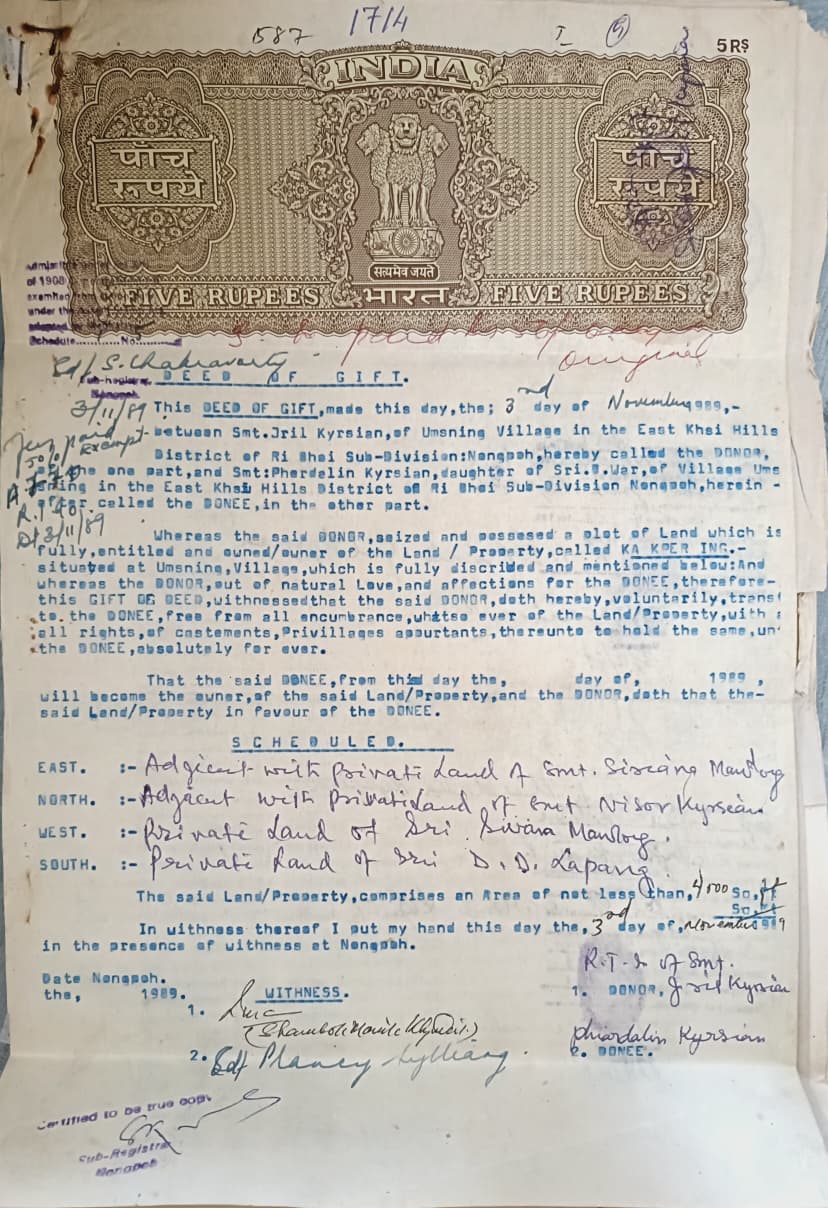 587 1714 I 5
5 RS
INDIA
पाँच रूपये
पाँच रूपये
सत्यमेव जयते
FIVE RUPEES भारत FIVE RUPEES
of 1908
under the
Schedule............No.
original
Sd/ S. Chakravarty
Sub-Registrar
Nongpoh
3/11/89
DEED OF GIFT.
This DEED OF GIFT,made this day,the; 3nd day of November 1989,-
between Smt.Jril Kyrsian,of Umsning Village in the East Khsi Hills
District of Ri Bhoi Sub-Division:Nongpoh,hereby called the DONOR,
the one part,and Smt:Pherdelin Kyrsian,daughter of Sri.B.War,of Village Ums
ning in the East Khsi Hills District of Ri Bhoi Sub-Division Nongpoh,herein -
after called the DONEE,in the other part.
exempt
Dt 3/11/89
Whereas the said DONOR,seized and possesed a plot of Land which is
fully,entitled and owned/owner of the Land / Property,called KA KPER ING.-
situated at Umsning,Village,which is fully discribed and mentioned below:And
whereas the DONOR,out of natural Love,and affections for the DONEE,therefore-
this GIFT OF DEED,witnessedthat the said DONOR,doth hereby,voluntarily,transf
to the DONEE,free from all encumbrance,whatso ever of the Land/Property,with
all rights,of castements,Privillages appurtants,thereunto to hold the same,un
the DONEE,absolutely for ever.
That the said DONEE,from this day the, day of, 1989,
will become the owner,of the said Land/Property,and the DONOR,doth that the-
said Land/Property in favour of the DONEE.
SCHEDULED.
EAST. :- Adjicent with Private Land of Smt. Sircäng Mawlog
NORTH. :- Adjacent with Private Land of Smt Nisor Kyrsian
WEST. :- Private Land of Sri Siwara Mawlog.
SOUTH. :- Private Land of Sri D. D. Lapang.
The said Land/Property,comprises an Area of not less than, 4000 Sq,ft
Sq,
In witness thereof I put my hand this day the, 3rd day of, November 1989
in the presence of witness at Nongpoh.
R.T.I. of Smt.
Date Nongpoh.
the, 1989. WITNESS.
1. DONOR, Jril Kyrsian
1.
2. Sd/
Phiardalin Kyrsian
2. DONEE.
Certified to be true copy
Sub-Registrar
Nongpoh